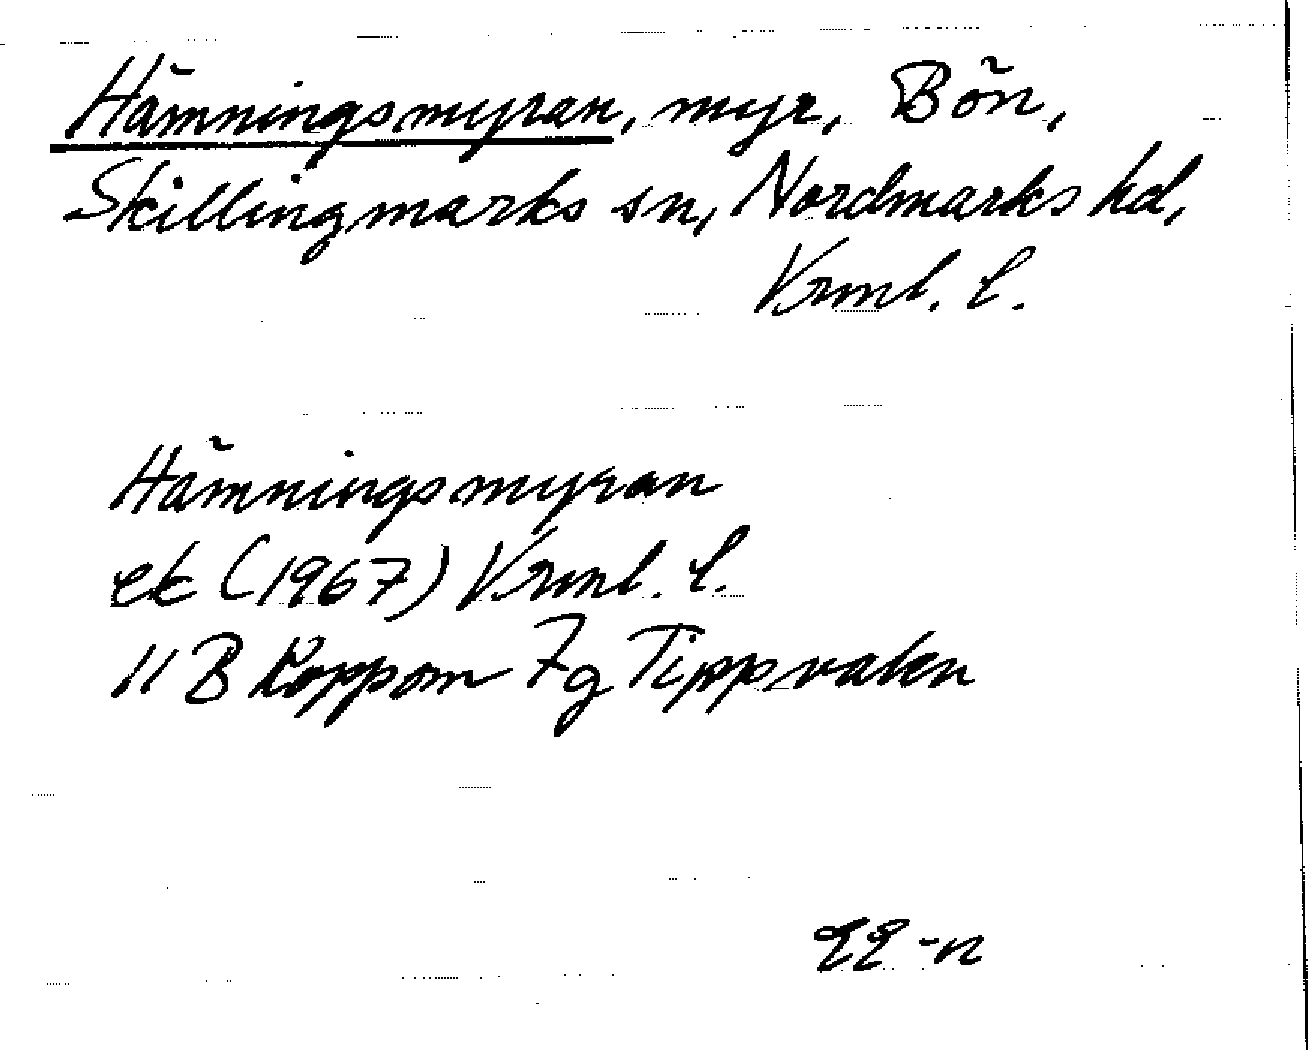 Hämningsmyran, myr, Bön,
Skillingmarks sn, Nordmarks hd,
Vrml. l.
Hämningsmyran
ek (1967) Vrml. l.
11 B Koppom 7g Tippvaken